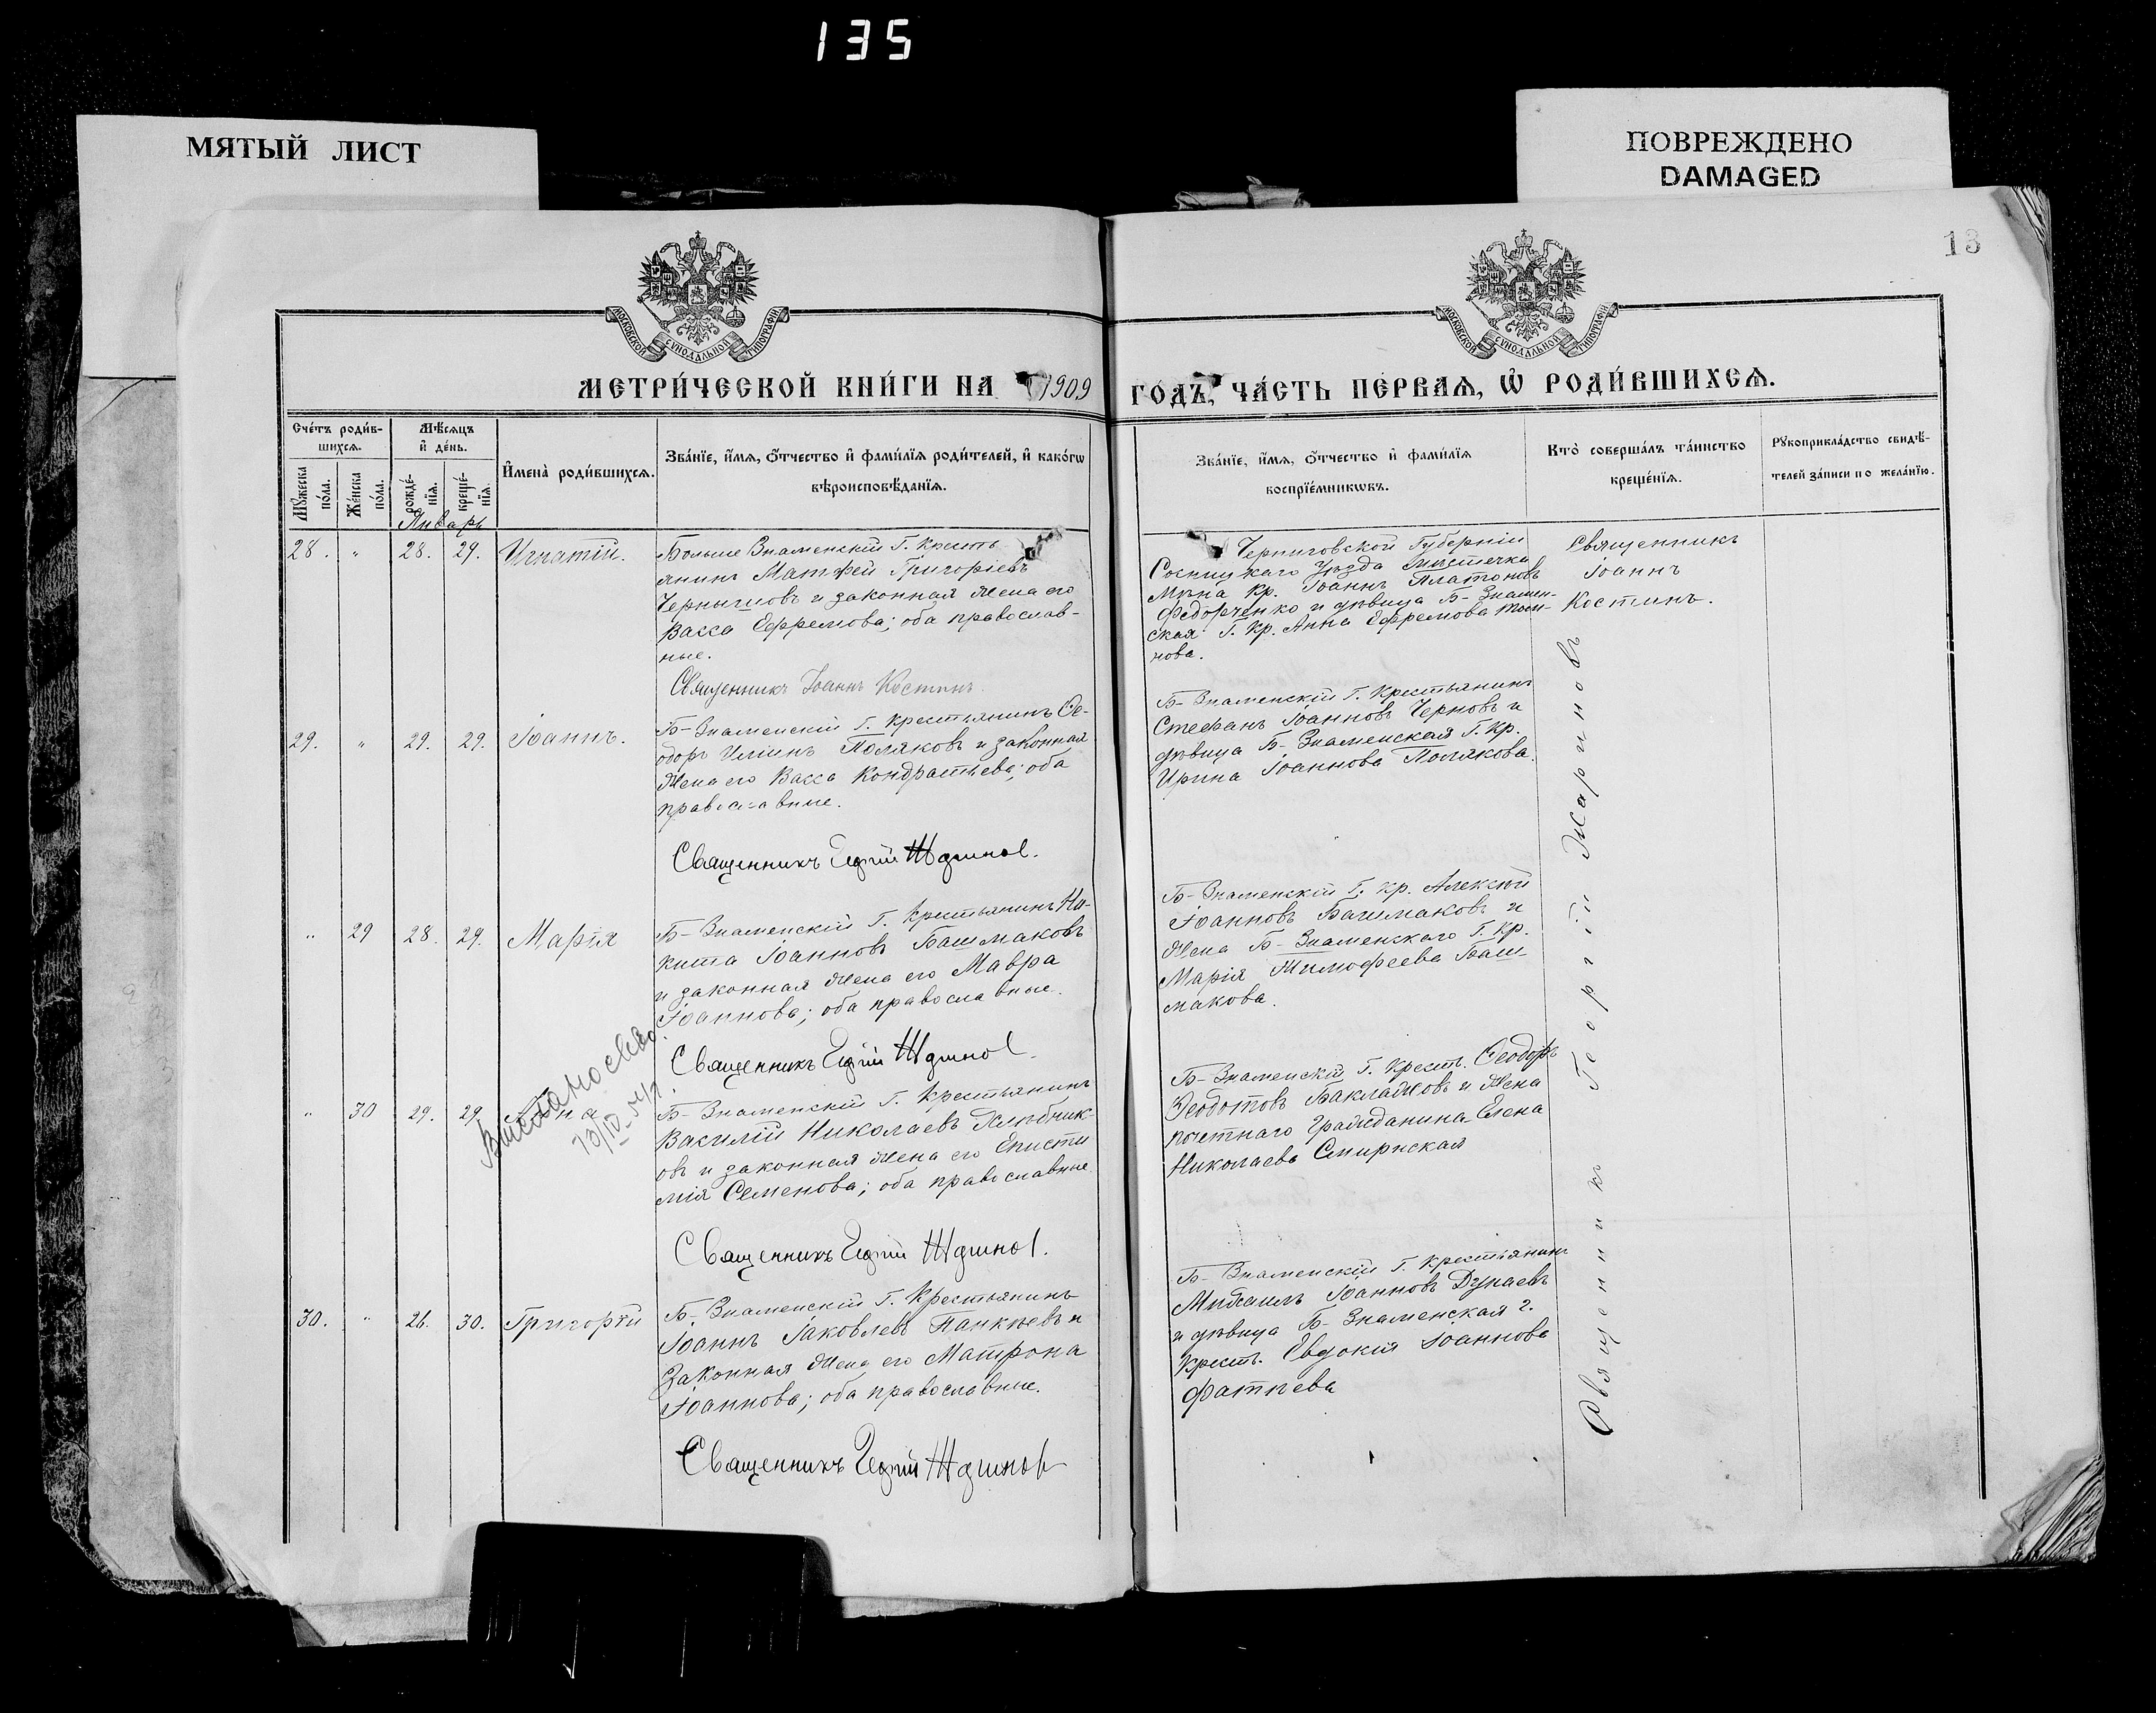 135
МЯТЫЙ ЛИСТ
ПОВРЕЖДЕНО
DAMAGED
13
МОСКОВСКОЙ СУНОДАЛЬНОЙ ТИПОГРАФІИ
МОСКОВСКОЙ СУНОДАЛЬНОЙ ТИПОГРАФІИ
МЕТРИ́ЧЕСКОЙ КНИ́ГИ НА 1909 ГО́ДЪ, ЧА́СТЬ ПЕ́РВАЯ, Ѽ РОДИ́ВШИХСЯ.
Сче́тъ роди́в-
шихся.
Мꙋ́жеска
по́ла.
Же́нска
по́ла.
Мѣ́сяцъ
и҆ де́нь.
рожде́-
нїя.
креще́-
нїя.
И҆мена̀ роди́вшихся.
Зва́нїе, и҆́мя, ѻ҆́тчество и҆ фами́лїя роди́телей, и҆ како́гѡ
вѣроисповѣ́данїя.
Зва́нїе, и҆́мя, ѻ҆́тчество и҆ фами́лїя
воспрїе́мникѡвъ.
Кто̀ соверша́лъ та́инство
креще́нїя.
Рꙋкоприкла́дство свидѣ́-
телей за́писи по жела́нїю.
Январь
28. " 28. 29. Игнатій.
Больше Знаменскій Г. Кресть-
янинъ Матѳей Григоріевъ
Чернышовъ и законная жена его
Васса Ефремова; оба православ-
ные.
Священникъ Іоаннъ Костинъ
Черниговской Губерніи
Сосницкаго Уѣзда мѣстечка
Мѣна Кр. Іоаннъ Платоновъ
Федорченко и дѣвица Б-Знамен-
ская Г. Кр. Анна Ефремова
нова.
Священникъ
Іоаннъ
Костинъ.
29. " 29. 29. Іоаннъ.
Б-Знаменскій Г. Крестьянинъ Ѳе-
одоръ Иліинъ Поляковъ и законная
жена его Васса Кондратьева; оба
православные.
Священникъ Георгій Жариновъ.
Б-Знаменскій Г. Крестьянинъ
Стефанъ Іоанновъ Черновъ и
дѣвица Б-Знаменская Г. Кр.
Ирина Іоаннова Полякова.
" 29 28. 29. Марія
Б-Знаменскій Г. Крестьянинъ Ни-
кита Іоанновъ Башмаковъ
и законная жена его Мавра
Іоаннова; оба православные.
Священникъ Георгій Жариновъ.
Б-Знаменскій Г. Кр. Алексѣй
Іоанновъ Башмаковъ и
жена Б-Знаменскаго Г. Кр.
Марія Тимофеева Баш-
макова.
" 30 29. 29. Анна
Б-Знаменскій Г. Крестьянинъ
Василій Николаевъ Хлѣбник-
овъ и законная жена его Еписти
мія Семенова; оба православные.
Священникъ Георгій Жариновъ.
Б-Знаменскій Г. Крест. Ѳеодоръ
Ѳеодотовъ Баклажовъ и жена
почетнаго Гражданина Елена
Николаева Смирнская
30. " 26. 30. Григорій
Б-Знаменскій Г. Крестьянинъ
Іоаннъ Іаковлевъ Панкѣевъ и
законная жена его Матрона
Іоаннова; оба православные.
Священникъ Георгій Жариновъ
Б-Знаменскій Г. Крестьянинъ
Михаилъ Іоанновъ Дунаевъ
и дѣвица Б-Знаменская г.
Крест. Евдокія Іоаннова
Фатѣева
Священникъ Георгій Жариновъ